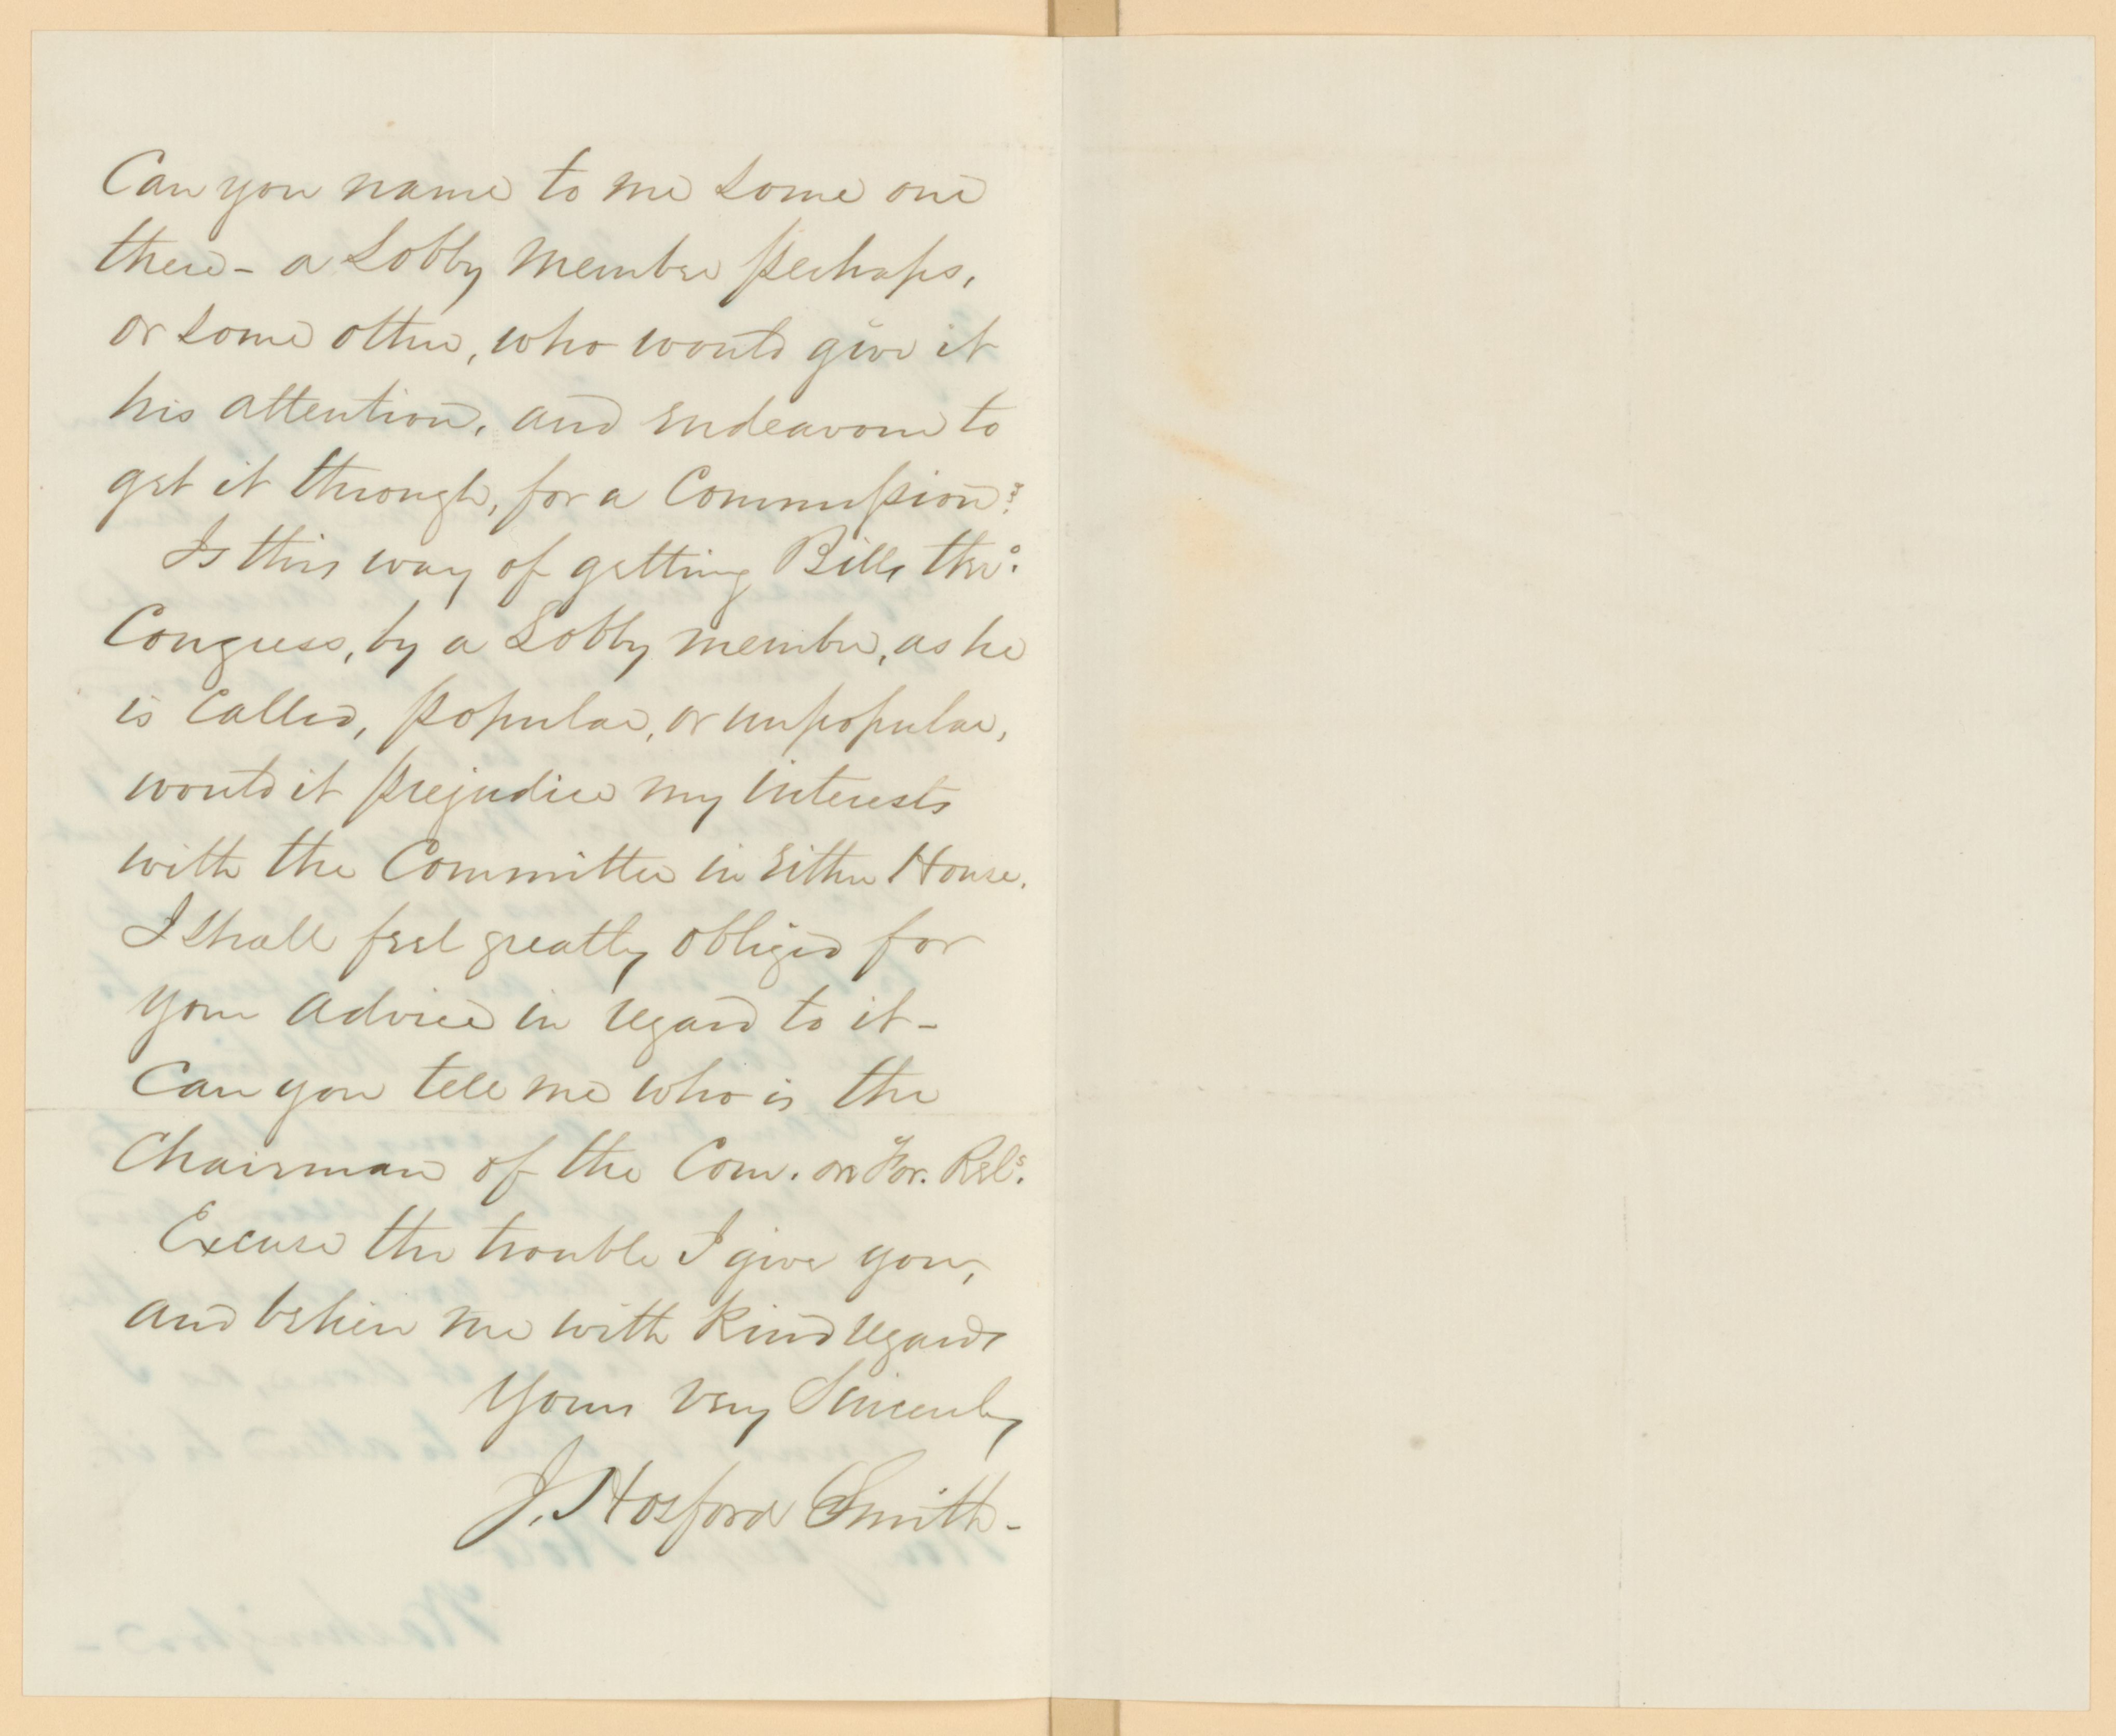 Can you name to me some one
there - a Lobby Member perhaps,
or some other, who would give it
his attention, and endeavour to
get it through, for a Commission?
Is this way of getting Bills thro:
Congress, by a Lobby member, as he
is Called, popular, or unpopular,
would it prejudice my interests
with the Committee in either House.
I shall feel greatly obliged for
your advice in regard to it -
Can you tell me who is the
Chairman of the Com. on For. Rels.
Excuse the trouble I give you,
and believe me with kind regards
Yours very Sincerely
J. Hosford Smith -